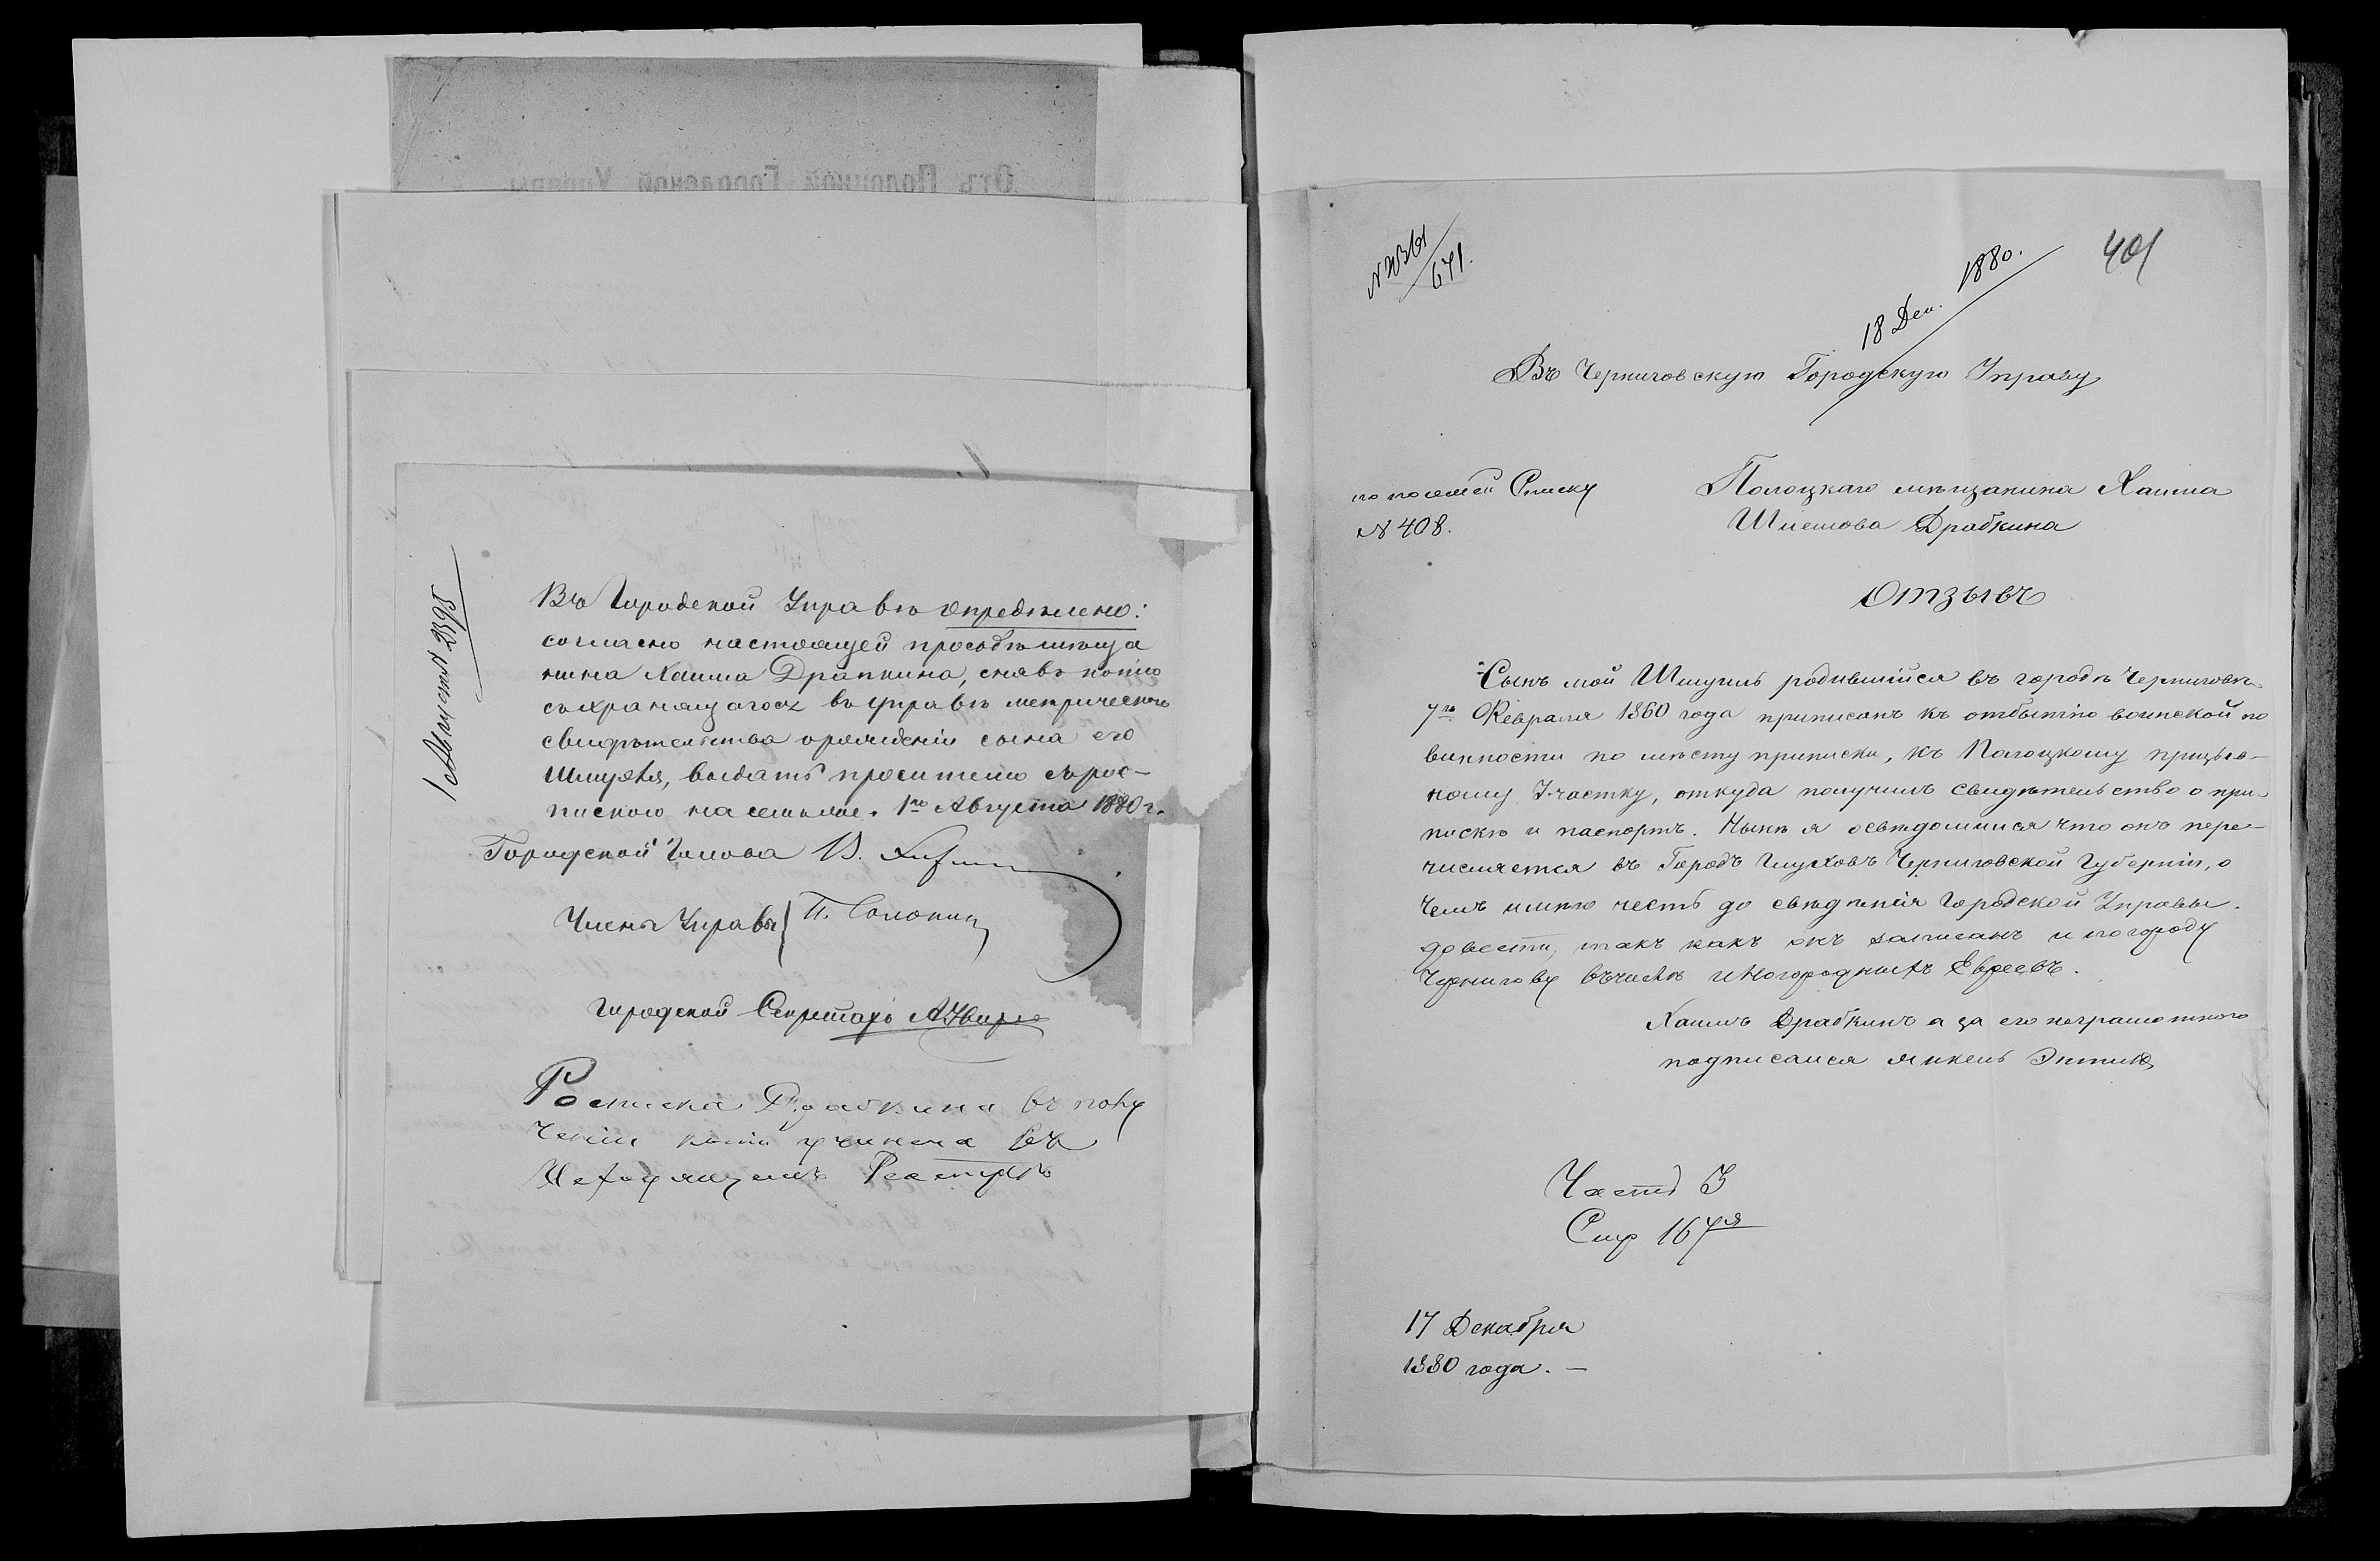 Отъ Полоцкой Городской Управы
1 Августа № 2398
Въ Городской Управѣ опредѣлено:
согласно настоящей прозьбѣ мѣща
нина Хаима Драпкина, снявъ копію
съ хранящагося въ управѣ метрическаго
свидѣтельства о рожденіи сына его
Шмуэля, выдать просителю съ рос-
пискою на семъ же. 1го Августа 1880 г.
Городской Голова В.
Члены Управы П. Солонин
Городской Секретарь
Росписка Драбкина въ полу
ченіи копіи учинена въ
Исходящемъ Реэстрѣ
671.
18 Дек. 1880.
401
Въ Черниговскую Городскую Управу
по посемей Списку
№ 408.
Полоцкаго мѣщанина Хаима
Шмеилова Драбкина
Отзывъ
Сынъ мой Шмуиль родившійся въ городѣ Черниговѣ
7го Февраля 1860 года приписанъ къ отбытію воинской по
винности по мѣсту приписки, къ Полоцкому призыв-
ному Участку, откуда получилъ свидѣтельство о при-
пискѣ и паспортъ. Нынѣ я освѣдомился что онъ пере-
числяется въ Городъ Глуховъ Черниговской Губерніи, о
чемъ имѣю честь до свѣдѣнія Городской Управы.
довести, такъ какъ онъ записанъ и по городу
Чернигову въ числѣ иногородныхъ Евреевъ.
Хаимъ Драбкинъ а за его неграмотного
подписался Янкель
Часть 3
Стр 167я
17 Декабря
1880 года. —